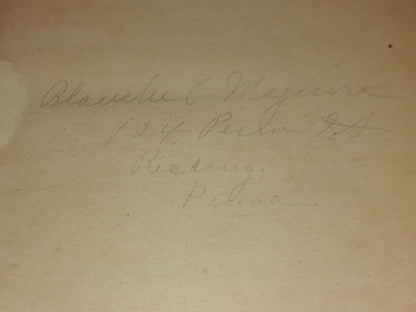 Blanche E Maguire
124 Penn St
Reading,
Penna.